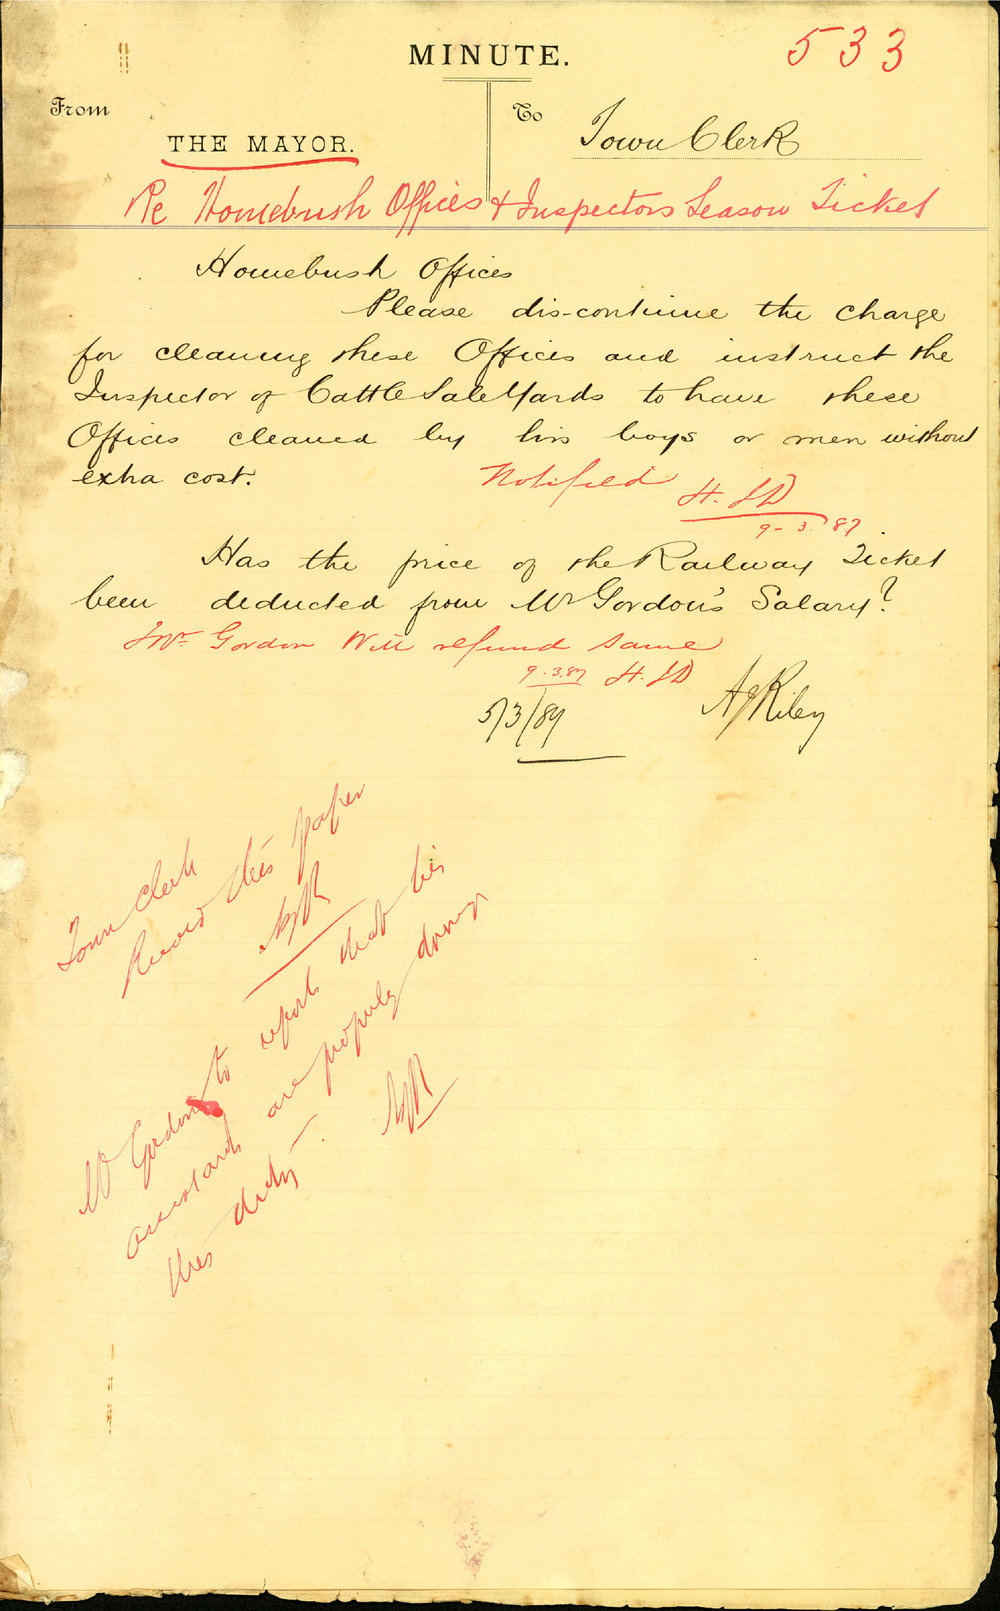 MINUTE.
533
From
To
THE MAYOR.
Town Clerk
Re Homebush Offices & Inspectors Season Ticket
Homebush Offices
Please dis-continue the charge
for cleaning these Offices and instruct the
Inspector of Cattle Sale Yards to have these
Offices cleaned by his boys or men without
extra cost.
Notified H.SD
9-3.87.
Has the price of the Railway Ticket
been deducted from Mr Gordon's Salary?
Mr Gordon Will refund same
9.3.87 H.SD
5/3/87
AJRiley
Town Clerk
Record this paper
AJR
Mr Gordon to report that his
assistants are properly doing
this duty.
AJR